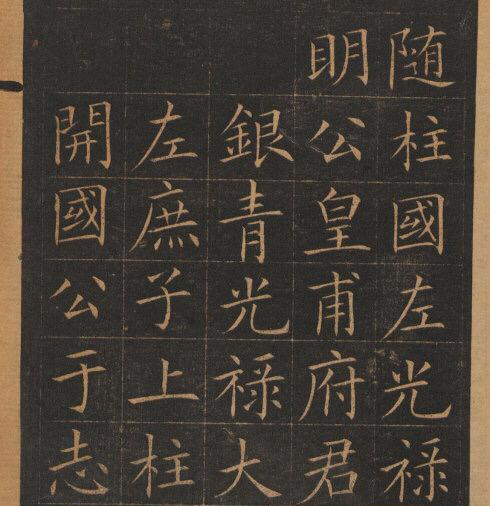 随柱國左光禄
明公皇甫府君
銀青光禄大
左庶子上柱
開國公于志